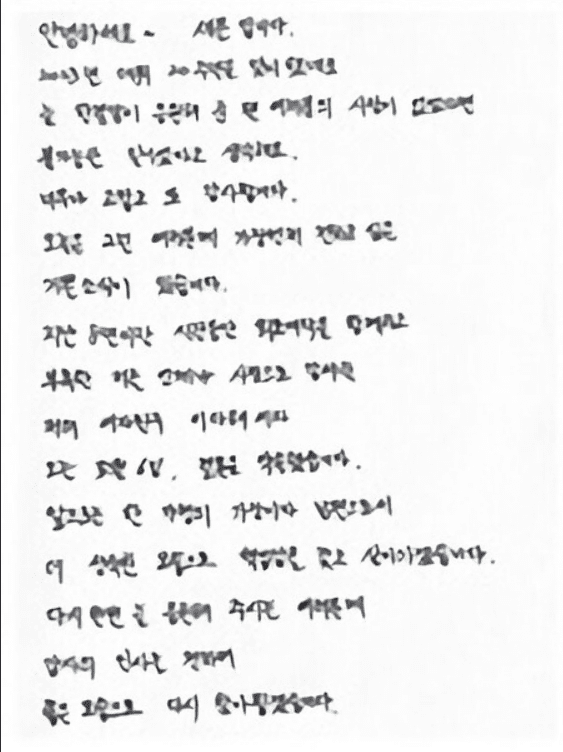 안녕하세요~ 세븐 입니다.
2023년 데뷔 20주년을 맞이 했네요
늘 한결같이 응원해 준 팬 여러분의 사랑이 없었으면
불가능한 일이었다고 생각해요.
너무나 고맙고 또 감사합니다.
오늘은 그런 여러분께 가장먼저 전하고 싶은
기쁜소식이 있습니다.
지난 8년이란 시간동안 희로애락을 함께하고
부족한 저를 언제나 사랑으로 감싸준
저의 여자친구 이다해 씨와
오는 5월 6일, 결혼을 약속했습니다.
앞으로는 한 가정의 가장이자 남편으로서
더 성숙한 모습으로 책임감을 갖고 살아가겠습니다.
다시 한번 늘 응원해 주시는 여러분께
감사의 인사를 전하며
좋은 모습으로 다시 찾아뵙겠습니다.